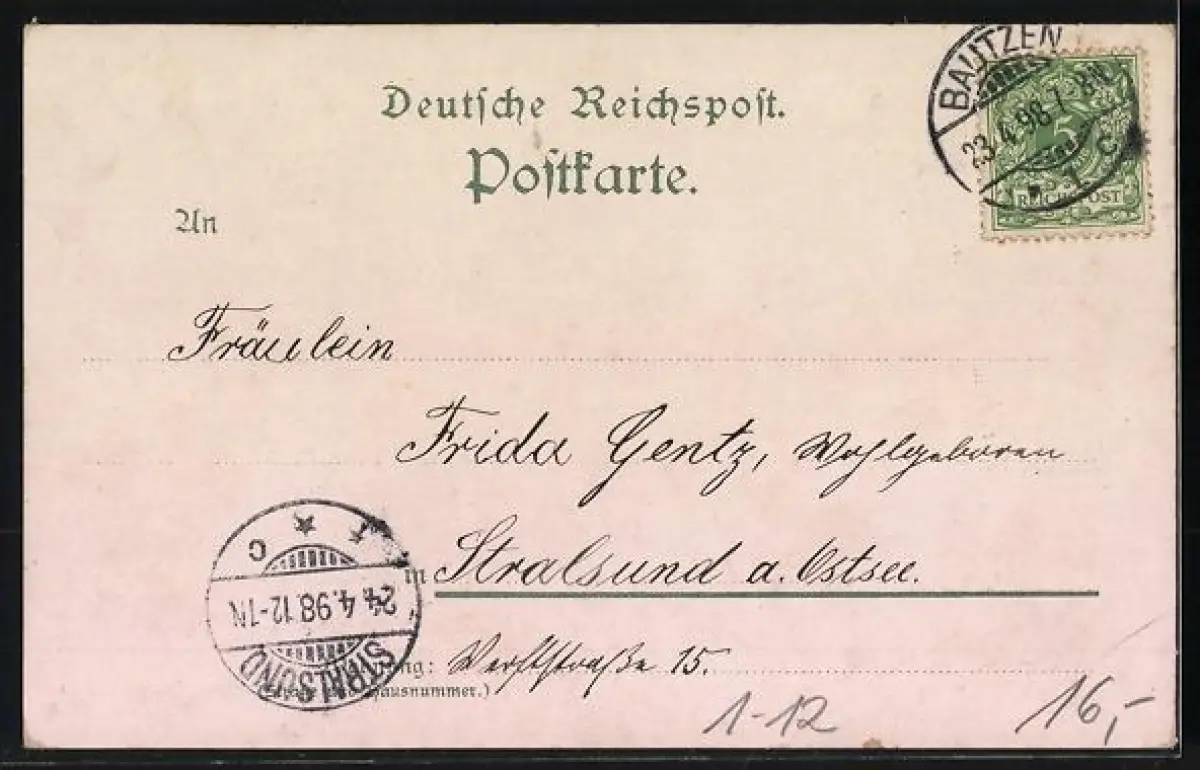 BAUTZEN
23.4.98.7-8N.
1 c
5
REICHSPOST
Deutsche Reichspost.
Postkarte.
An
Fräulein
Frida Gentz, Wohlgeboren
in Stralsund a. Ostsee.
Werftstraße 15.
(Straße und Hausnummer.)
STRALSUND
24.4.98.12-1N
1 ★ C
1-12
16,-